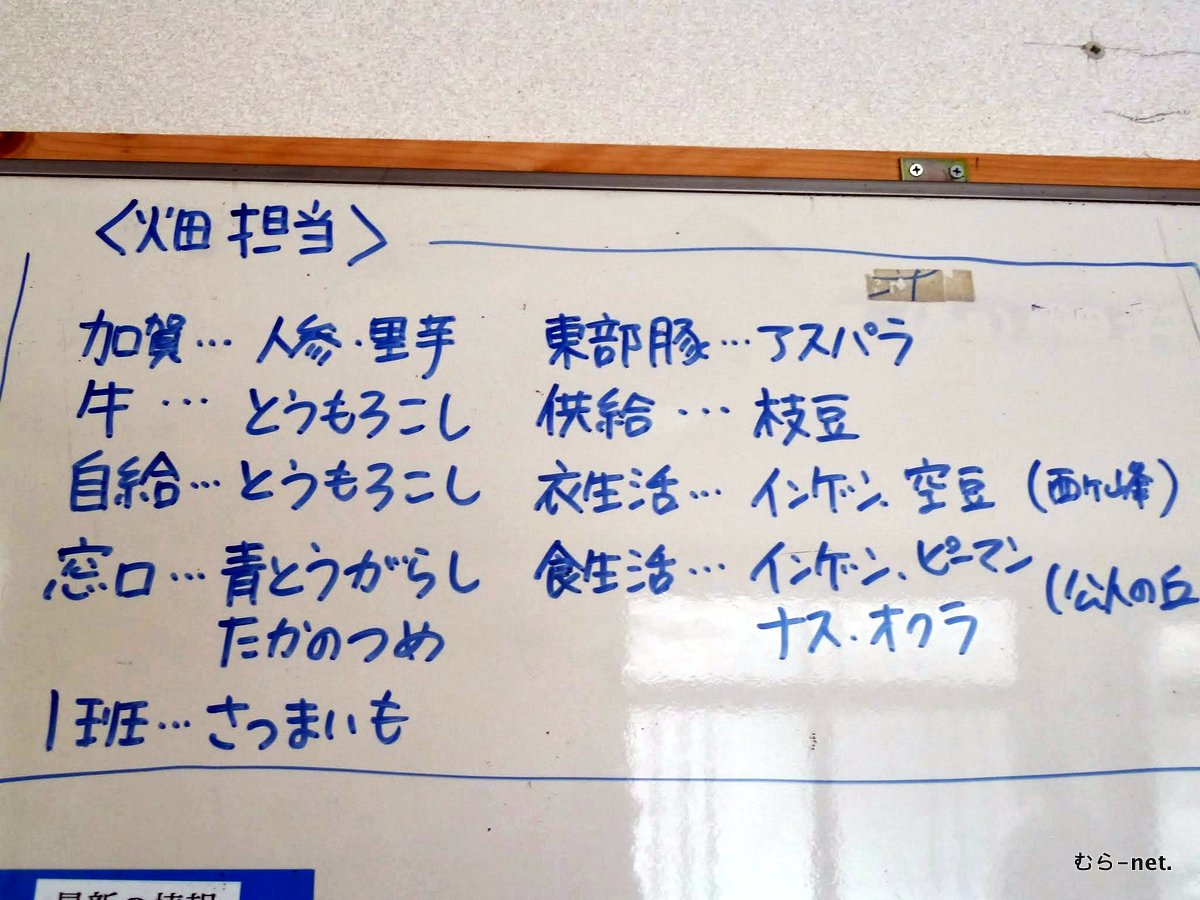 〈畑担当〉
加賀…人参・里芋
牛…とうもろこし
自給…とうもろこし
窓口…青とうがらし
たかのつめ
1班…さつまいも
東部豚…アスパラ
供給…枝豆
衣生活…インゲン、空豆(西ケ峰)
食生活…インゲン、ピーマン
ナス・オクラ
(公人の丘
最新の情報
むら-net.